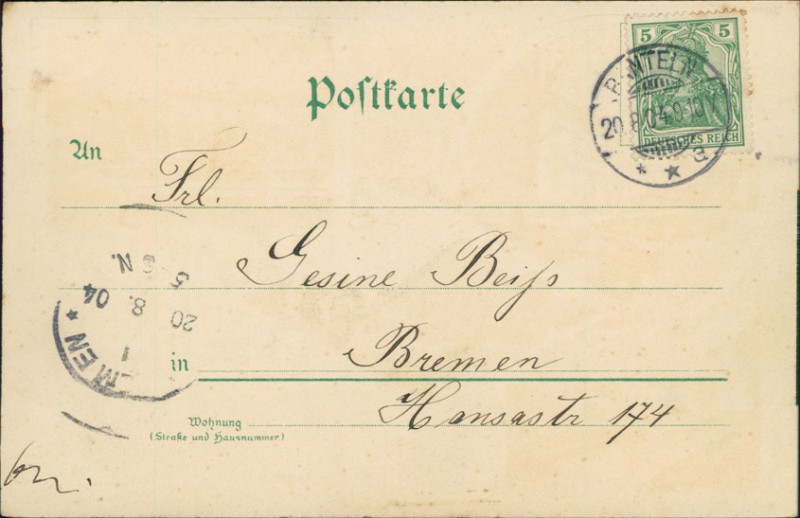 Postkarte
5 5
DEUTSCHES REICH
20.8.04.9-10V.
a
An
Frl.
Gesine Beiß
in Bremen
Wohnung
(Straße und Hausnummer)
Hansastr 174
MEN
1
20 8. 04
N.